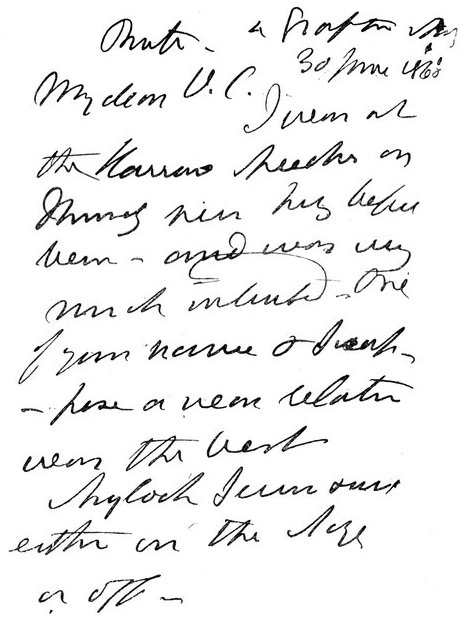 Private - 4 Grafton St
30 June 1868
My dear V. C.
I was at
the Harrow Speeches on
Thursday never having before
been - and was very
much interested - One
of your name & I sup-
- pose a near relation
was the best
Shylock I ever saw
either on the Stage
or off -